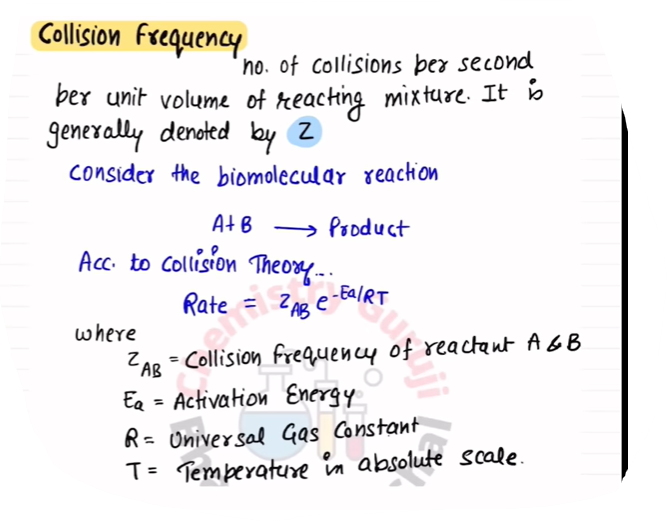 Collision Frequency
no. of collisions per second
per unit volume of reacting mixture. It is
generally denoted by Z
Consider the biomolecular reaction
A+B → Product
Acc. to Collision Theory...
Rate = Z_AB e^-Ea/RT
where
Z_AB = Collision frequency of reactant A & B
Ea = Activation Energy
R = Universal Gas Constant
T = Temperature in absolute scale.
Chemistry Guruji